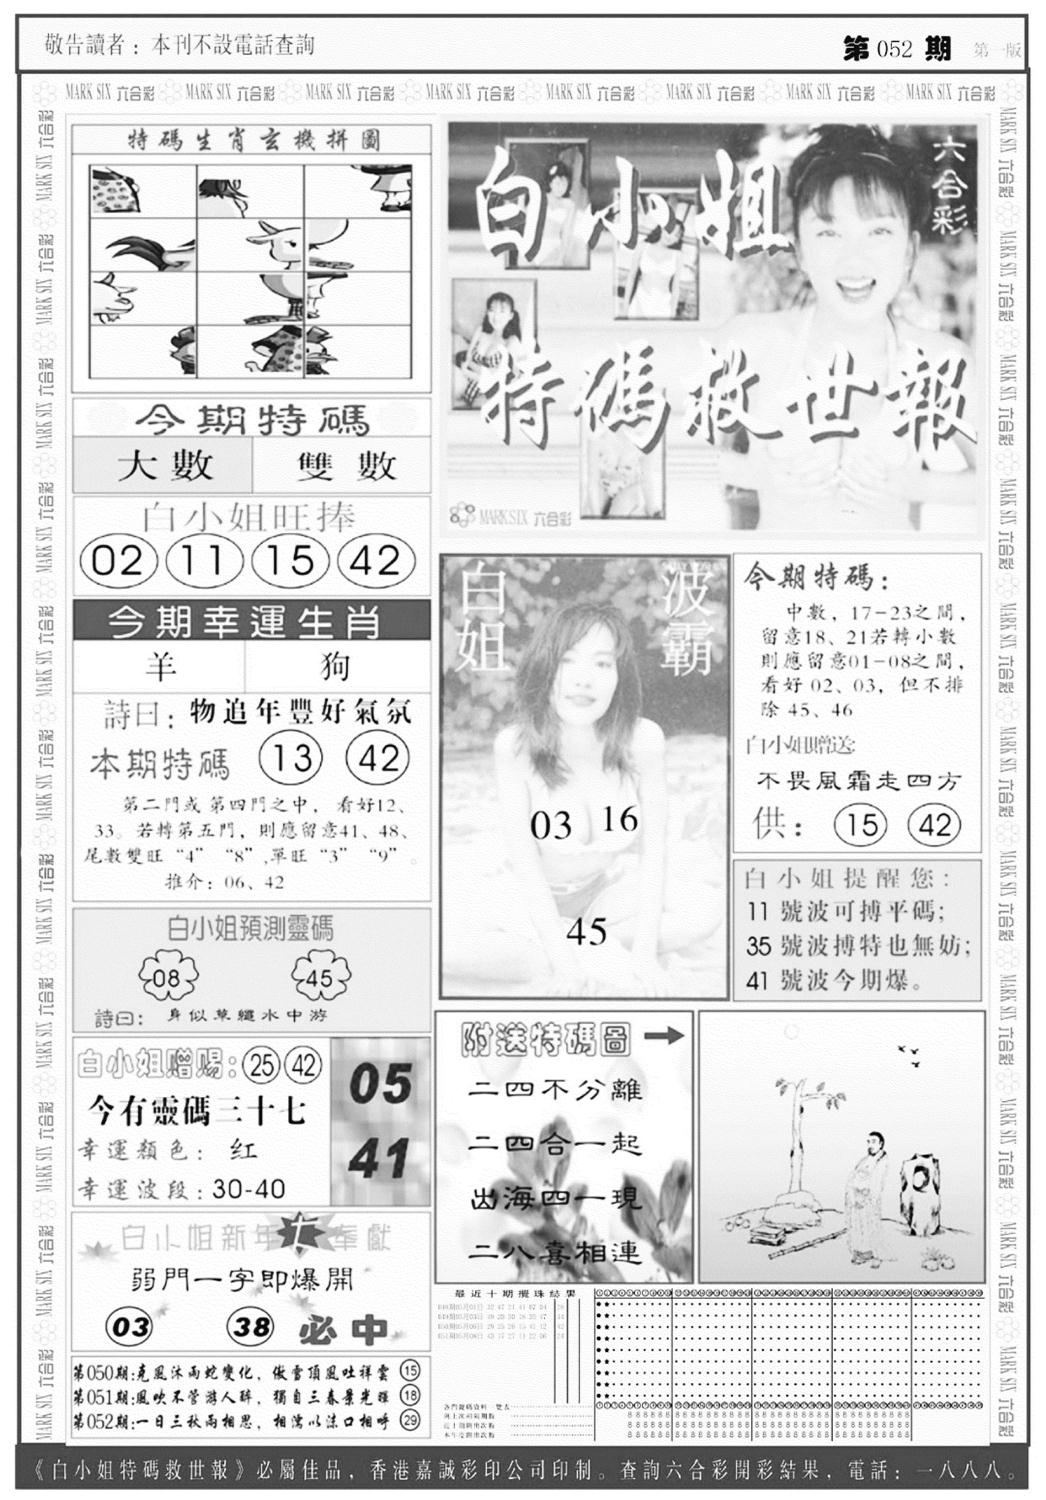 敬告讀者：本刊不設電話查詢
第 052 期 第一版
MARK SIX 六合彩 MARK SIX 六合彩 MARK SIX 六合彩 MARK SIX 六合彩 MARK SIX 六合彩 MARK SIX 六合彩 MARK SIX 六合彩 MARK SIX 六合彩
特碼生肖玄機拼圖
今期特碼
大數 雙數
白小姐旺捧
02 11 15 42
今期幸運生肖
羊 狗
詩曰：物追年豐好氣氛
本期特碼 13 42
第二門或第四門之中，看好12、
33。若轉第五門，則應留意41、48、
尾數雙旺“4” “8”,單旺“3” “9”。
推介：06、42
白小姐預測靈碼
08 45
詩曰：身似草繩水中游
白小姐贈賜：25 42
今有靈碼三十七
幸運顏色：红
幸運波段：30-40
05
41
白小姐新年七奉獻
弱門一字即爆開
03 38 必中
第050期:克風沐雨蛇變化，傲雪頂風吐祥雲 15
第051期:風吹不管游人醉，獨自三春景光輝 18
第052期:一日三秋兩相思，相濡以沫口相呼 29
白小姐
六合彩
特碼救世報
MARK SIX 六合彩
白姐
波霸
03 16
45
今期特碼：
中數，17-23之間，
留意18、21若轉小數
則應留意01-08之間，
看好 02、03，但不排
除 45、46
白小姐贈送:
不畏風霜走四方
供： 15 42
白小姐提醒您：
11 號波可搏平碼；
35 號波搏特也無妨；
41 號波今期爆。
附送特碼圖
二四不分離
二四合一起
出海四一現
二八喜相連
最近十期攪珠結果
《白小姐特碼救世報》必屬佳品，香港嘉誠彩印公司印制。查詢六合彩開彩結果，電話：一八八八。